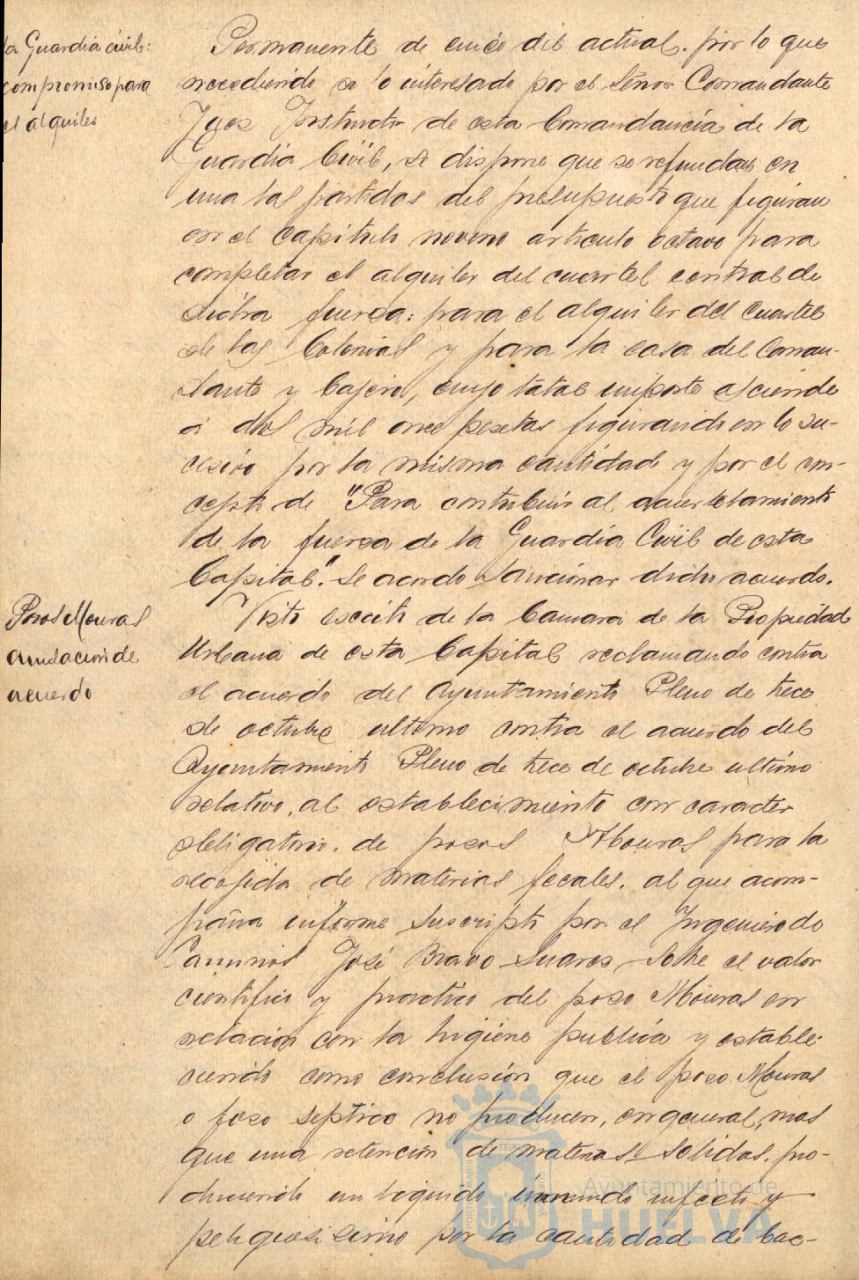 la Guardia civil:
compromiso para
el alquiler
Permanente de cinco del actual. por lo que
accediendo a lo interesado por el Señor Comandante
Juez Instructor de esta Comandancia de la
Guardia Civil, se dispone que se refundan en
una las partidas del presupuesto que figuran
en el capitulo noveno articulo octavo para
completar el alquiler del cuartel central de
dicha fuerza: para el alquiler del cuartel
de las Colonias y para la casa del Coman-
dante y Cajero, cuyo total importe asciende
a dos mil once pesetas figurando en lo su-
cesivo por la misma cantidad y por el con-
cepto de "Para contribuir al acuartelamiento
de la fuerza de la Guardia Civil de esta
Capital". Se acordo sancionar dicho acuerdo.
Pozos Mouras
anulacion de
acuerdo
Visto escrito de la Camara de la Propiedad
Urbana de esta Capital reclamando contra
el acuerdo del Ayuntamiento Pleno de trece
de octubre ultimo contra el acuerdo del
Ayuntamiento Pleno de trece de octubre ultimo
relativo, al establecimiento con caracter
obligatorio, de pozos Mouras para la
recogida de materias fecales, al que acom-
paña informe suscripto por el Ingeniero de
Caminos José Bravo Suarez sobre el valor
cientifico y practico del pozo Mouras en
relación con la higiene publica y estable-
ciendo como conclusión que el pozo Mouras
o foso septico no producen, en general, mas
que una retencion de materias solidas, pro-
duciendo un liquido inmundo infecto y
peligrosisimo por la cantidad de bac-
Ayuntamiento de
HUELVA